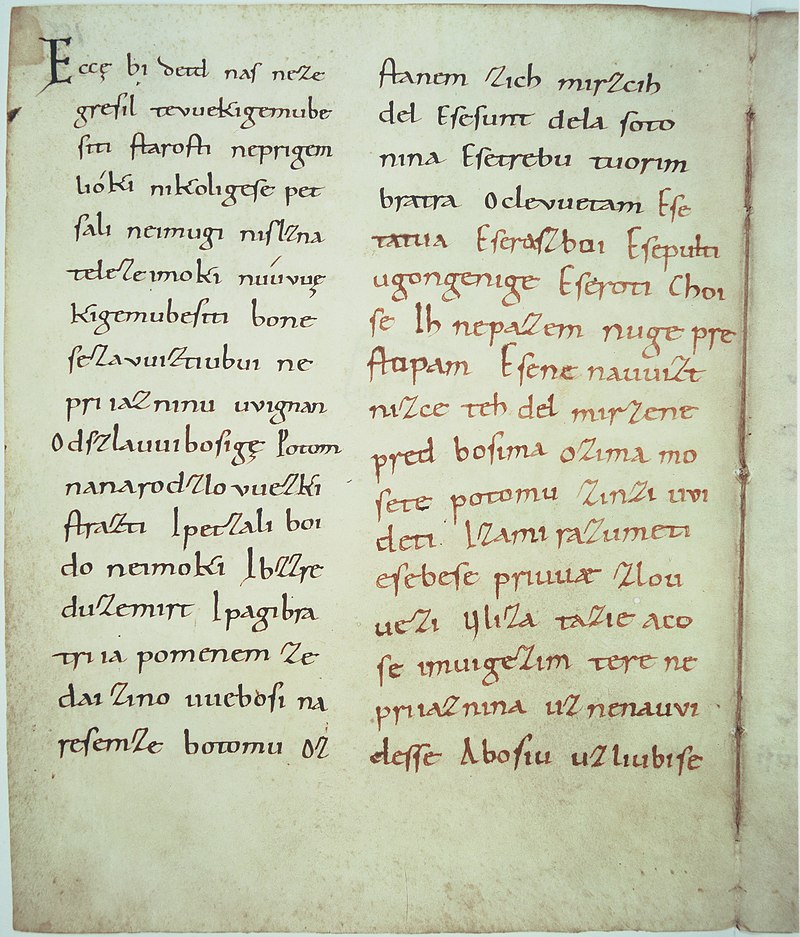 Eccę bi detd nas neze
gresil tevuekigemube
siti starosti neprigem
lióki nikoligese pet
sali neimugi nislzna
telezeimoki núúvvę
kigemubesiti bone
sezavuiztiubui ne
priiazninu uvignan
Odszlauuibosigę Potom
nanarodzlovuezki
strazti Ipetzali boi
do neimoki Ibzzre
duzemirt Ipagibra
triia pomenem ze
dai zino uuebosi na
resemze botomu Oz
stanem zich mirzcih
del Esesunt dela soto
nina Esetrebu tuorim
bratra Oclevuetam Ese
tatua Eserazboi Esepulti
ugongenige Eseroti Choi
se Ih nepazem nuge pre
stopam Esene nauuizt
nizce teh del mirzene
pred bosima ozima mo
sete potomu zinzi uvi
deti Izami razumeti
esebese priuuæ zlou
uezi Uliza tazie aco
se imuigezim tere ne
priiaznina uz nenauvi
desse Abosiu uzliubise